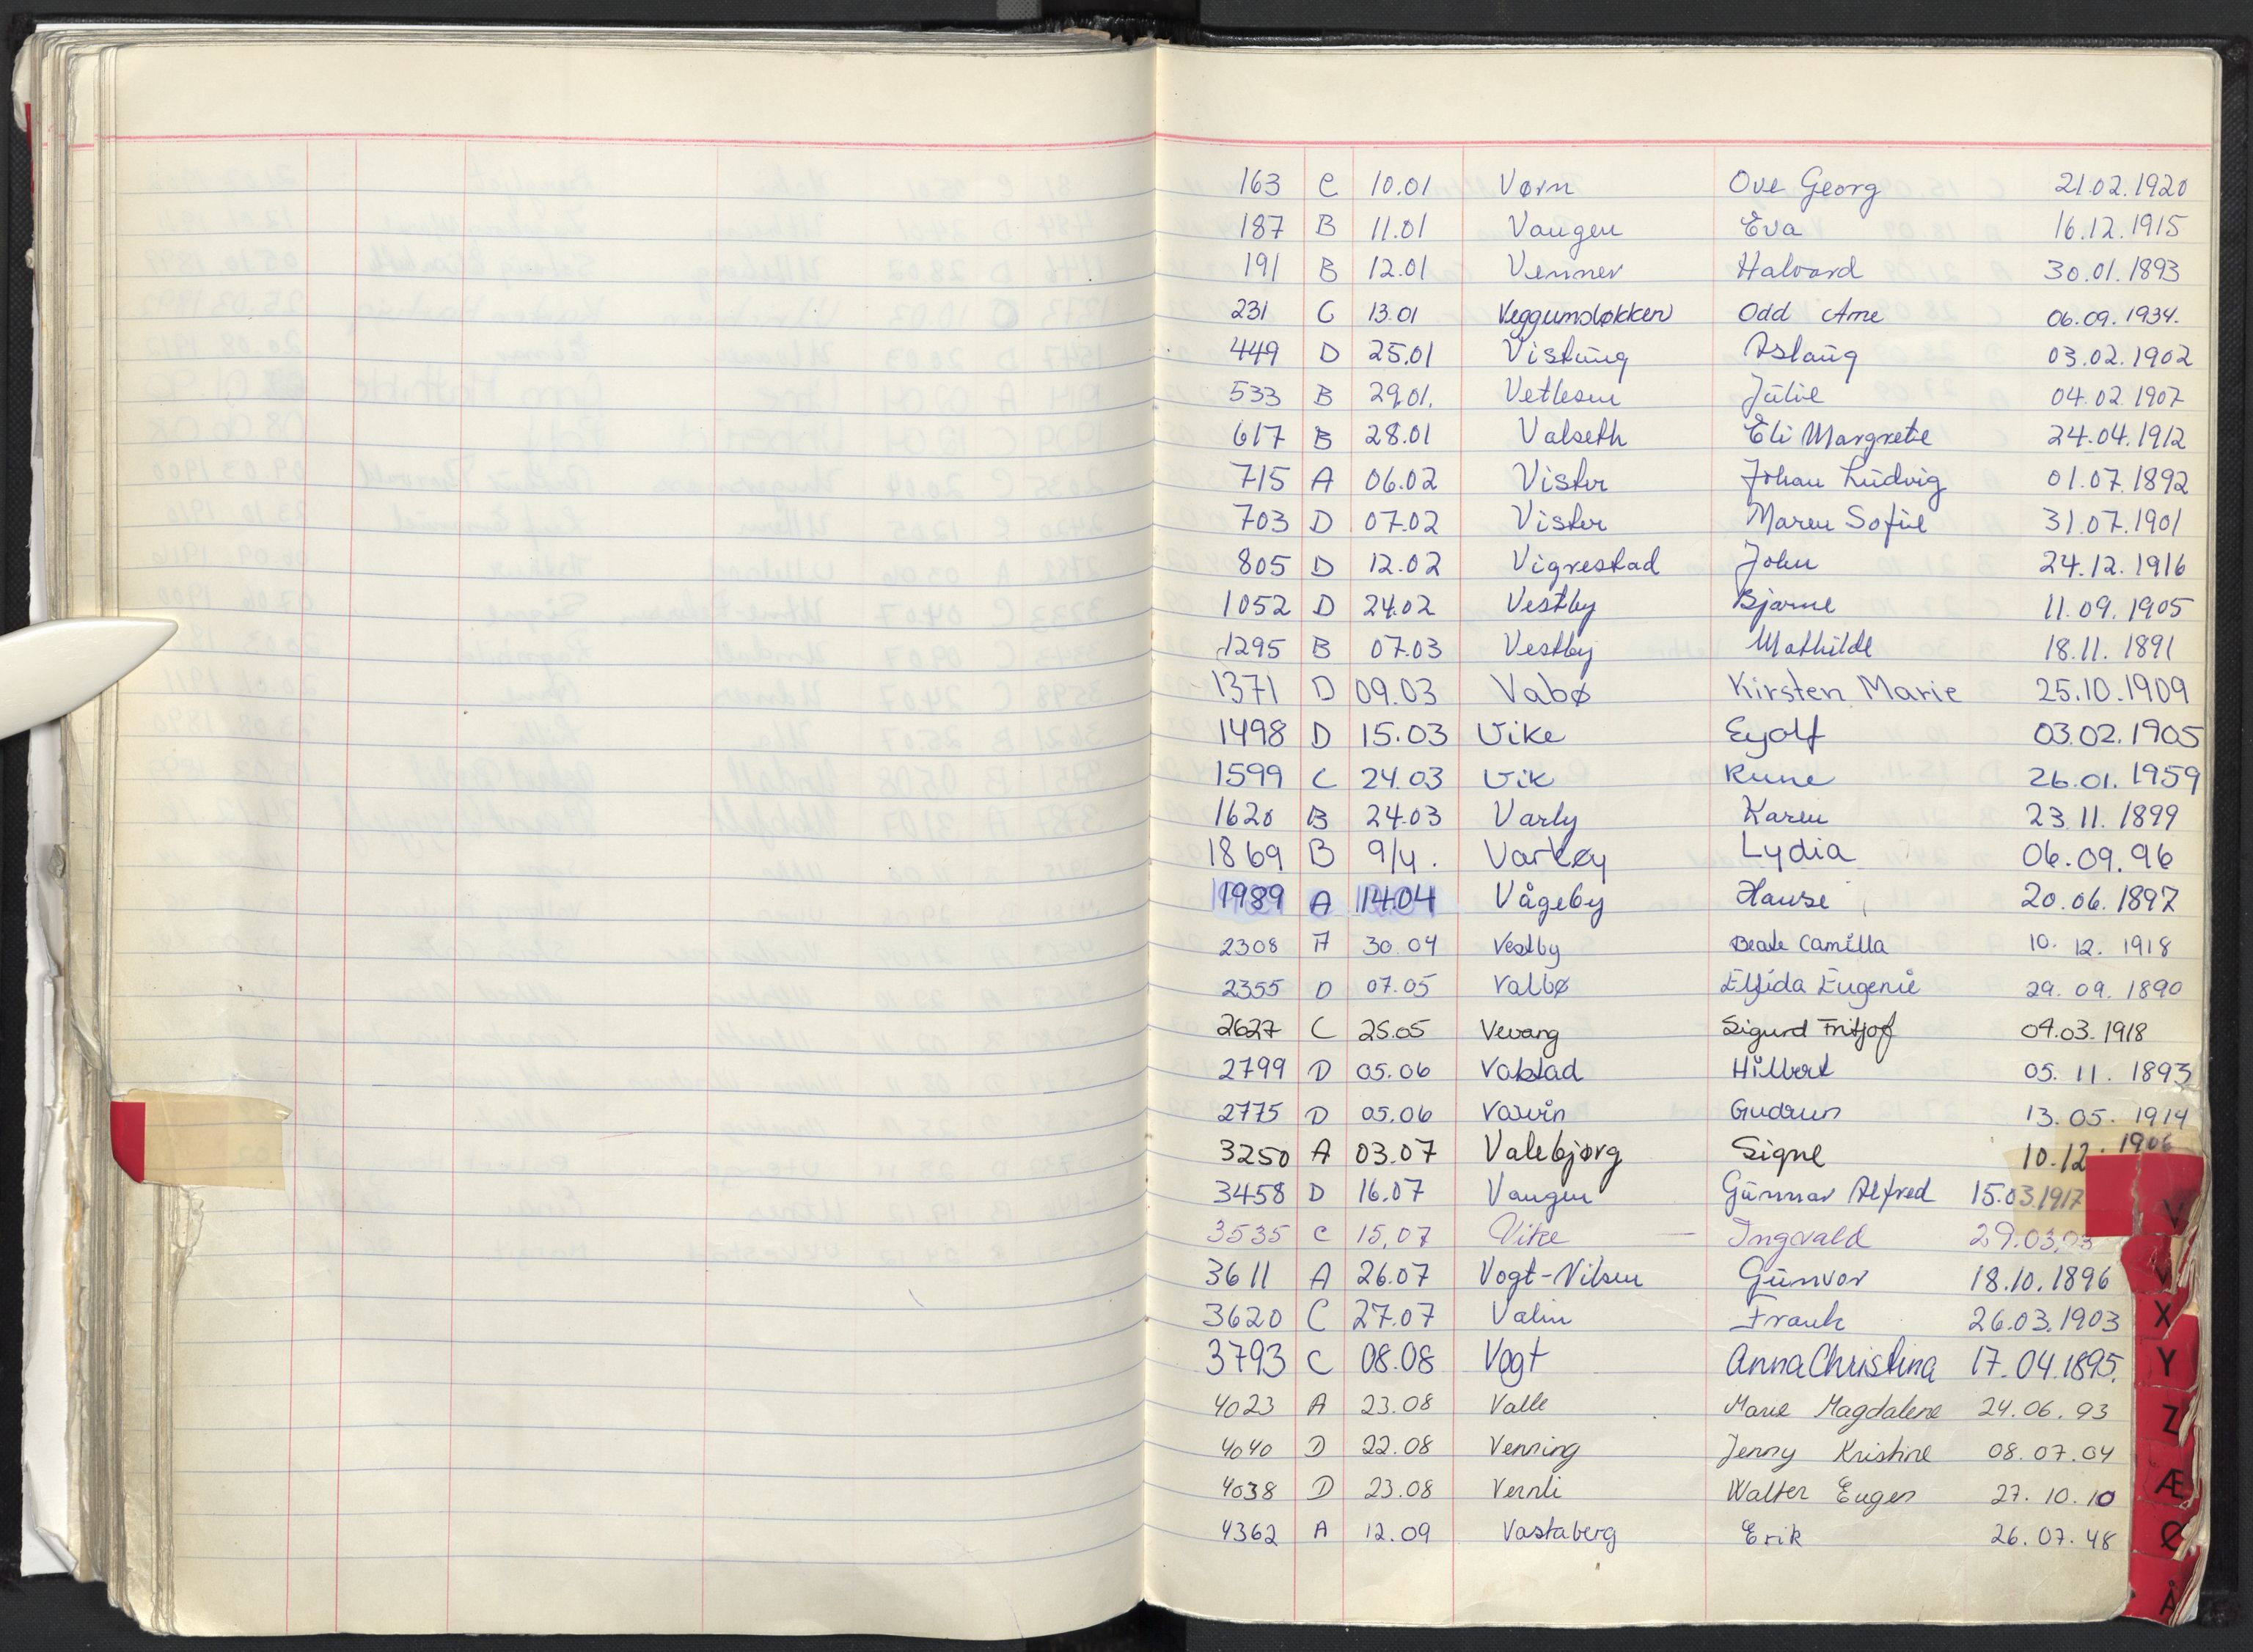 163 C 10.01 Vørn Ove Georg 21.02.1920
187 B 11.01 Vangen Eva 16.12.1915
191 B 12.01 Venner Halvard 30.01.1893
231 C 13.01 Veggumsløkken Odd Arne 06.09.1934.
449 D 25.01 Vistung Aslaug 03.02.1902
533 B 29.01. Vetlesen Julie 04.02.1907
617 B 28.01 Valseth Eli Margrete 24.04.1912
715 A 06.02 Vister Johan Ludvig 01.07.1892
703 D 07.02 Vister Maren Sofie 31.07.1901
805 D 12.02 Vigrestad John 24.12.1916
1052 D 24.02 Vestby Bjarne 11.09.1905
1295 B 07.03 Vestby Mathilde 18.11.1891
1371 D 09.03 Vabø Kirsten Marie 25.10.1909
1498 D 15.03 Vike Eyolf 03.02.1905
1599 C 24.03 Vik Rune 26.01.1959
1620 B 24.03 Varly Karen 23.11.1899
1869 B 9/4. Varkøy Lydia 06.09.96
1989 A 14.04 Vågeby 20.06.1897
2308 A 30.04 Vestby Beate Camilla 10.12.1918
2355 D 07.05 Valbø Elfida Eugenie 29.09.1890
2627 C 25.05 Vevang Sigurd Fritjof 04.03.1918
2799 D 05.06 Valstad Hilbert 05.11.1893
2775 D 05.06 Gudrun 13.05.1914
3250 A 03.07 Valebjørg Signe 10.12.1906
3458 D 16.07 Vangen Gunnar Alfred 15.03.1917
3535 C 15.07 Vike — Ingvald 29.03.03
3611 A 26.07 Vogt-Nilsen Gunvor 18.10.1896
3620 C 27.07 Valin Frank 26.03.1903
3793 C 08.08 Vogt Anna Christina 17.04.1895.
4023 A 23.08 Valle Marie Magdalene 24.06.93
4040 D 22.08 Venning Jenny Kristine 08.07.04
4038 D 23.08 Vernli Walter Eugen 27.10.10
4362 A 12.09 Vastaberg Erik 26.07.48
V
V
X
Y
Z
Æ
Ø
Å